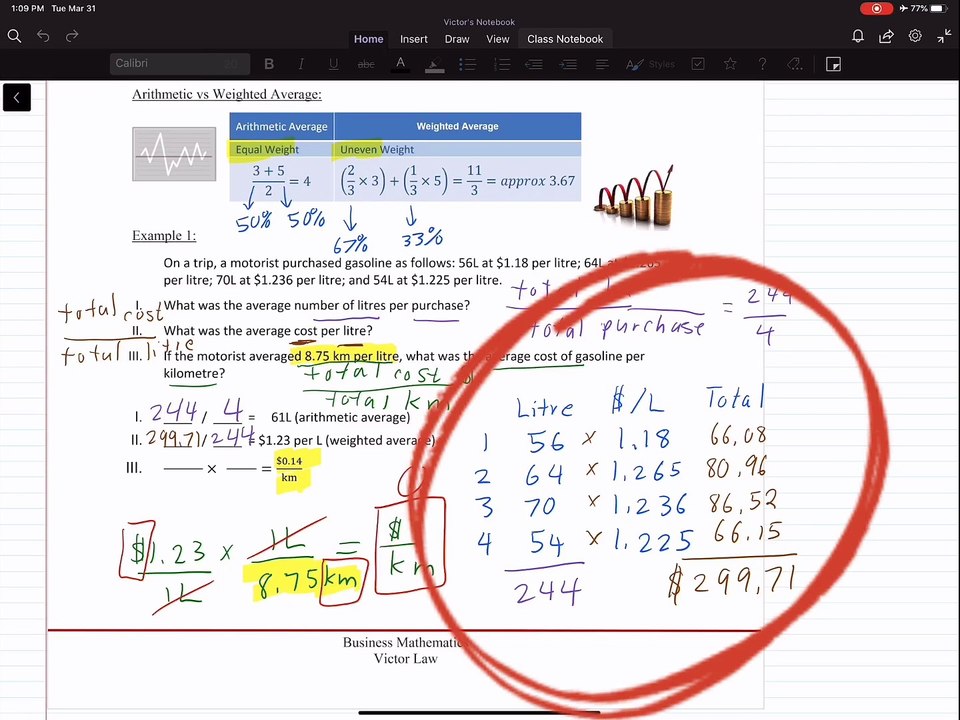 1:09 PM Tue Mar 31
77%
Victor's Notebook
Home Insert Draw View Class Notebook
Calibri 20 B I U abc A Styles
Arithmetic vs Weighted Average:
Arithmetic Average Weighted Average
Equal Weight Uneven Weight
(3 + 5)/2 = 4 (2/3 × 3) + (1/3 × 5) = 11/3 = approx 3.67
50% 50% 67% 33%
Example 1:
On a trip, a motorist purchased gasoline as follows: 56L at $1.18 per litre; 64L
per litre; 70L at $1.236 per litre; and 54L at $1.225 per litre.
I. What was the average number of litres per purchase?
total / total purchase = 244/4
total cost / total litre
II. What was the average cost per litre?
III. If the motorist averaged 8.75 km per litre, what was the average cost of gasoline per
kilometre?
total cost / total km
I. 244 / 4 = 61L (arithmetic average)
II. 299.71 / 244 = $1.23 per L (weighted average)
III. × = $0.14/km
$1.23/1L × 1L/8.75 km = $/km
Litre $/L Total
1 56 × 1.18 66.08
2 64 × 1.265 80.96
3 70 × 1.236 86.52
4 54 × 1.225 66.15
244 $299.71
Business Mathematics
Victor Law